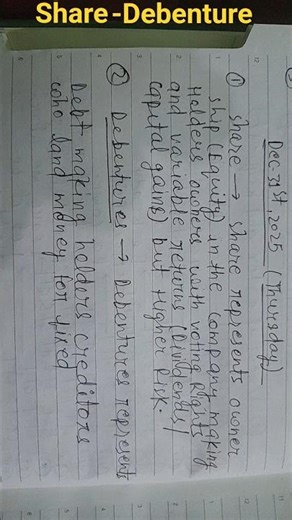 Share-Debenture
Dec-31st, 2025 (Thursday)
① Share → Share represents owner
ship (Equity) in the company making
Holders owners with voting Rights
and variable returns (Dividends/
capital gains) but Higher Risk.
② Debentures → Debentures represent
Debt making holders creditors
who land money for fixed